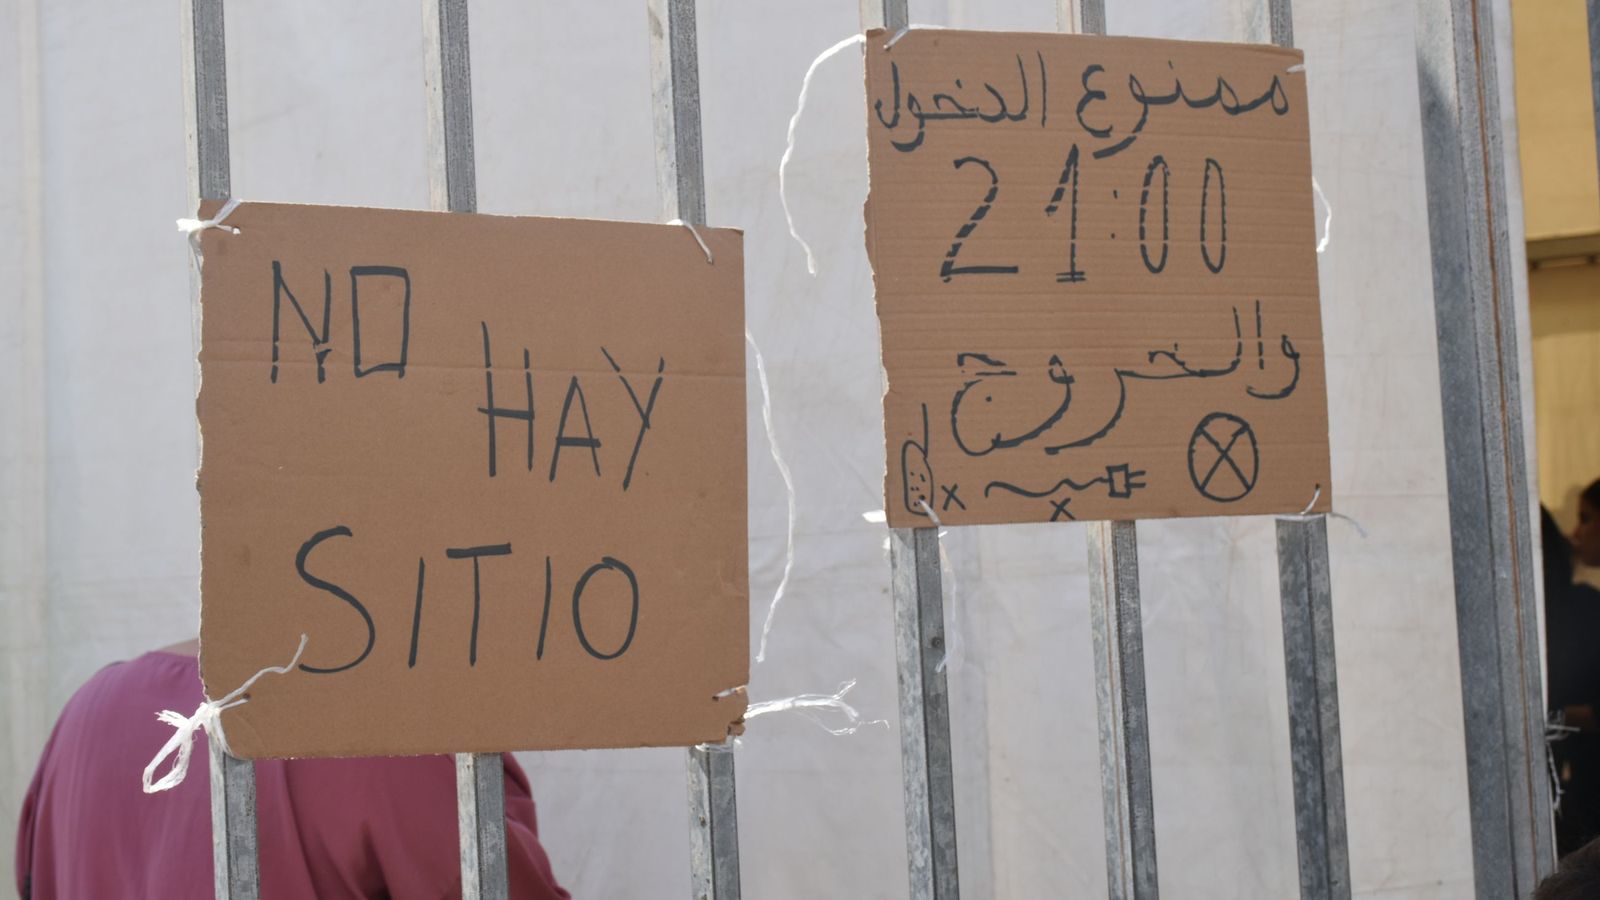 NO
HAY
SITIO
ممنوع الدخول
21:00
والخروج